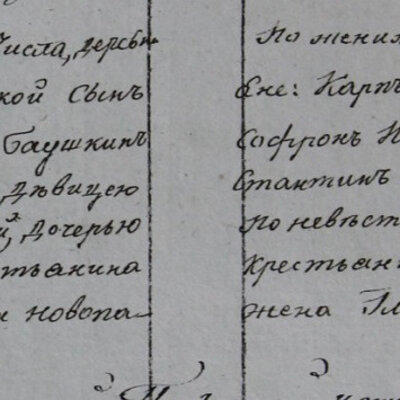 числа, деревн
кой сынъ
Баушкинъ
дѣвицею
й, дочерью
тьянина
и новопа-
По жених
Сне: Карпъ
Софронъ И
стантинъ
По невѣст
крестьян
жена